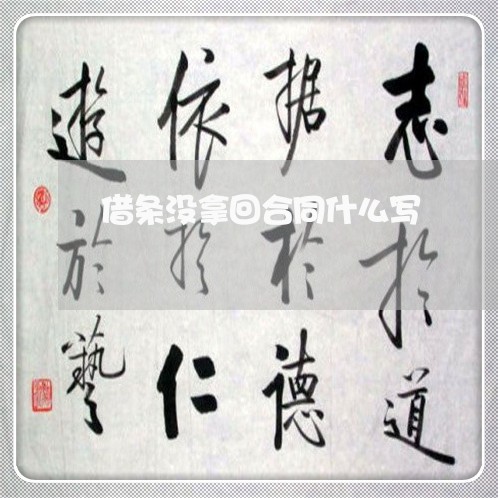 志於道
据於德
依於仁
遊於藝
借条没拿回合同什么写